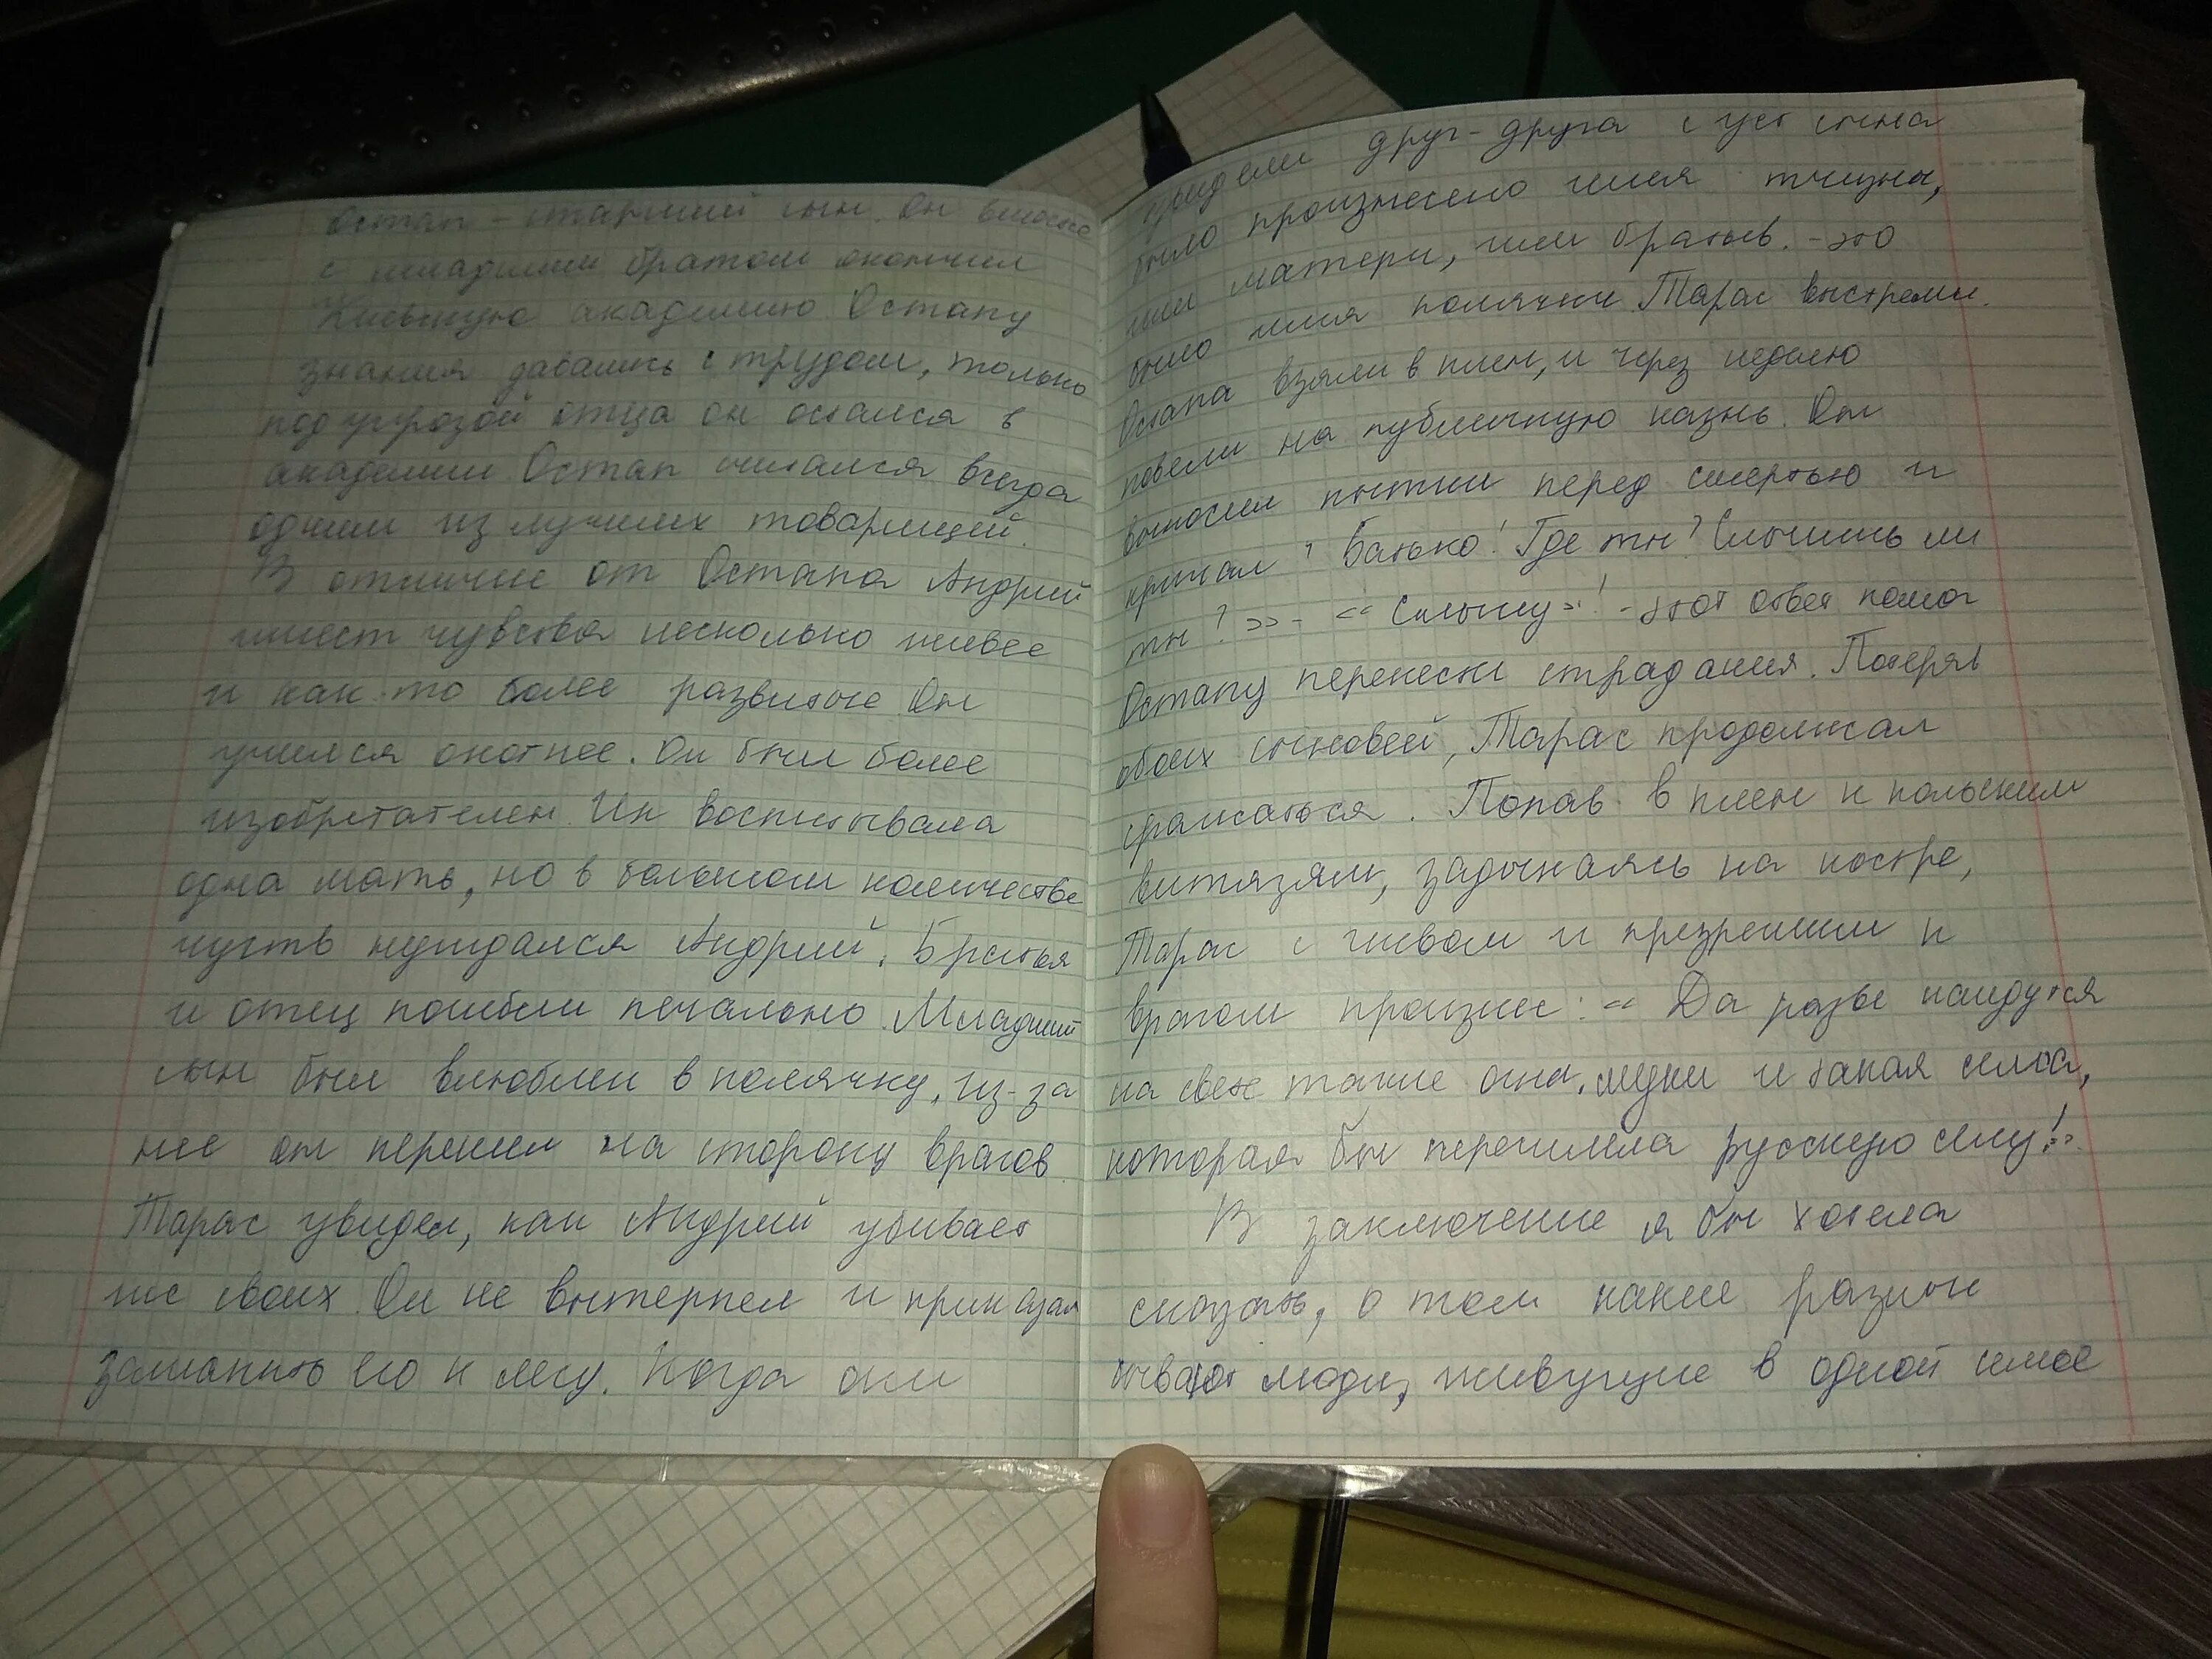 Остап - старший сын. Он вместе
с младшим братом окончил
Киевскую академию. Остапу
знания давались с трудом, только
под угрозой отца он остался в
академии. Остап считался всегда
одним из лучших товарищей.
В отличие от Остапа Андрий
имеет чувства несколько живее
и как-то более развитые. Он
учился охотнее. Он был более
изобретателен. Их воспитывала
одна мать, но в большом количестве
чувств нуждался Андрий. Братья
и отец погибли печально. Младший
сын был влюблен в полячку, из-за
нее он перешел на сторону врагов.
Тарас увидел, как Андрий убивает
же своих. Он не вытерпел и приказал
заманить его к лесу. Когда они
увидели друг-друга с уст сына
было произнесено имя тчизны,
или матери, или братьев. - это
было имя полячки. Тарас выстрелил.
Остапа взяли в плен, и через неделю
повели на публичную казнь. Он
выносил пытки перед смертью и
кричал " Батько! Где ты? Слышишь ли
ты? >> - << Слышу >>! - этот ответ помог
Остапу перенести страдания. Потеряв
обоих сыновей, Тарас продолжал
сражаться. Попав в плен к польским
витязям, задыхаясь на костре,
Тарас с гневом и презрением к
врагам произнес: << Да разве найдутся
на свете такие огни, муки и такая сила,
которая бы пересилила русскую силу! >>
В заключение я бы хотела
сказать, о том какие разные
бывают люди, живущие в одной семье